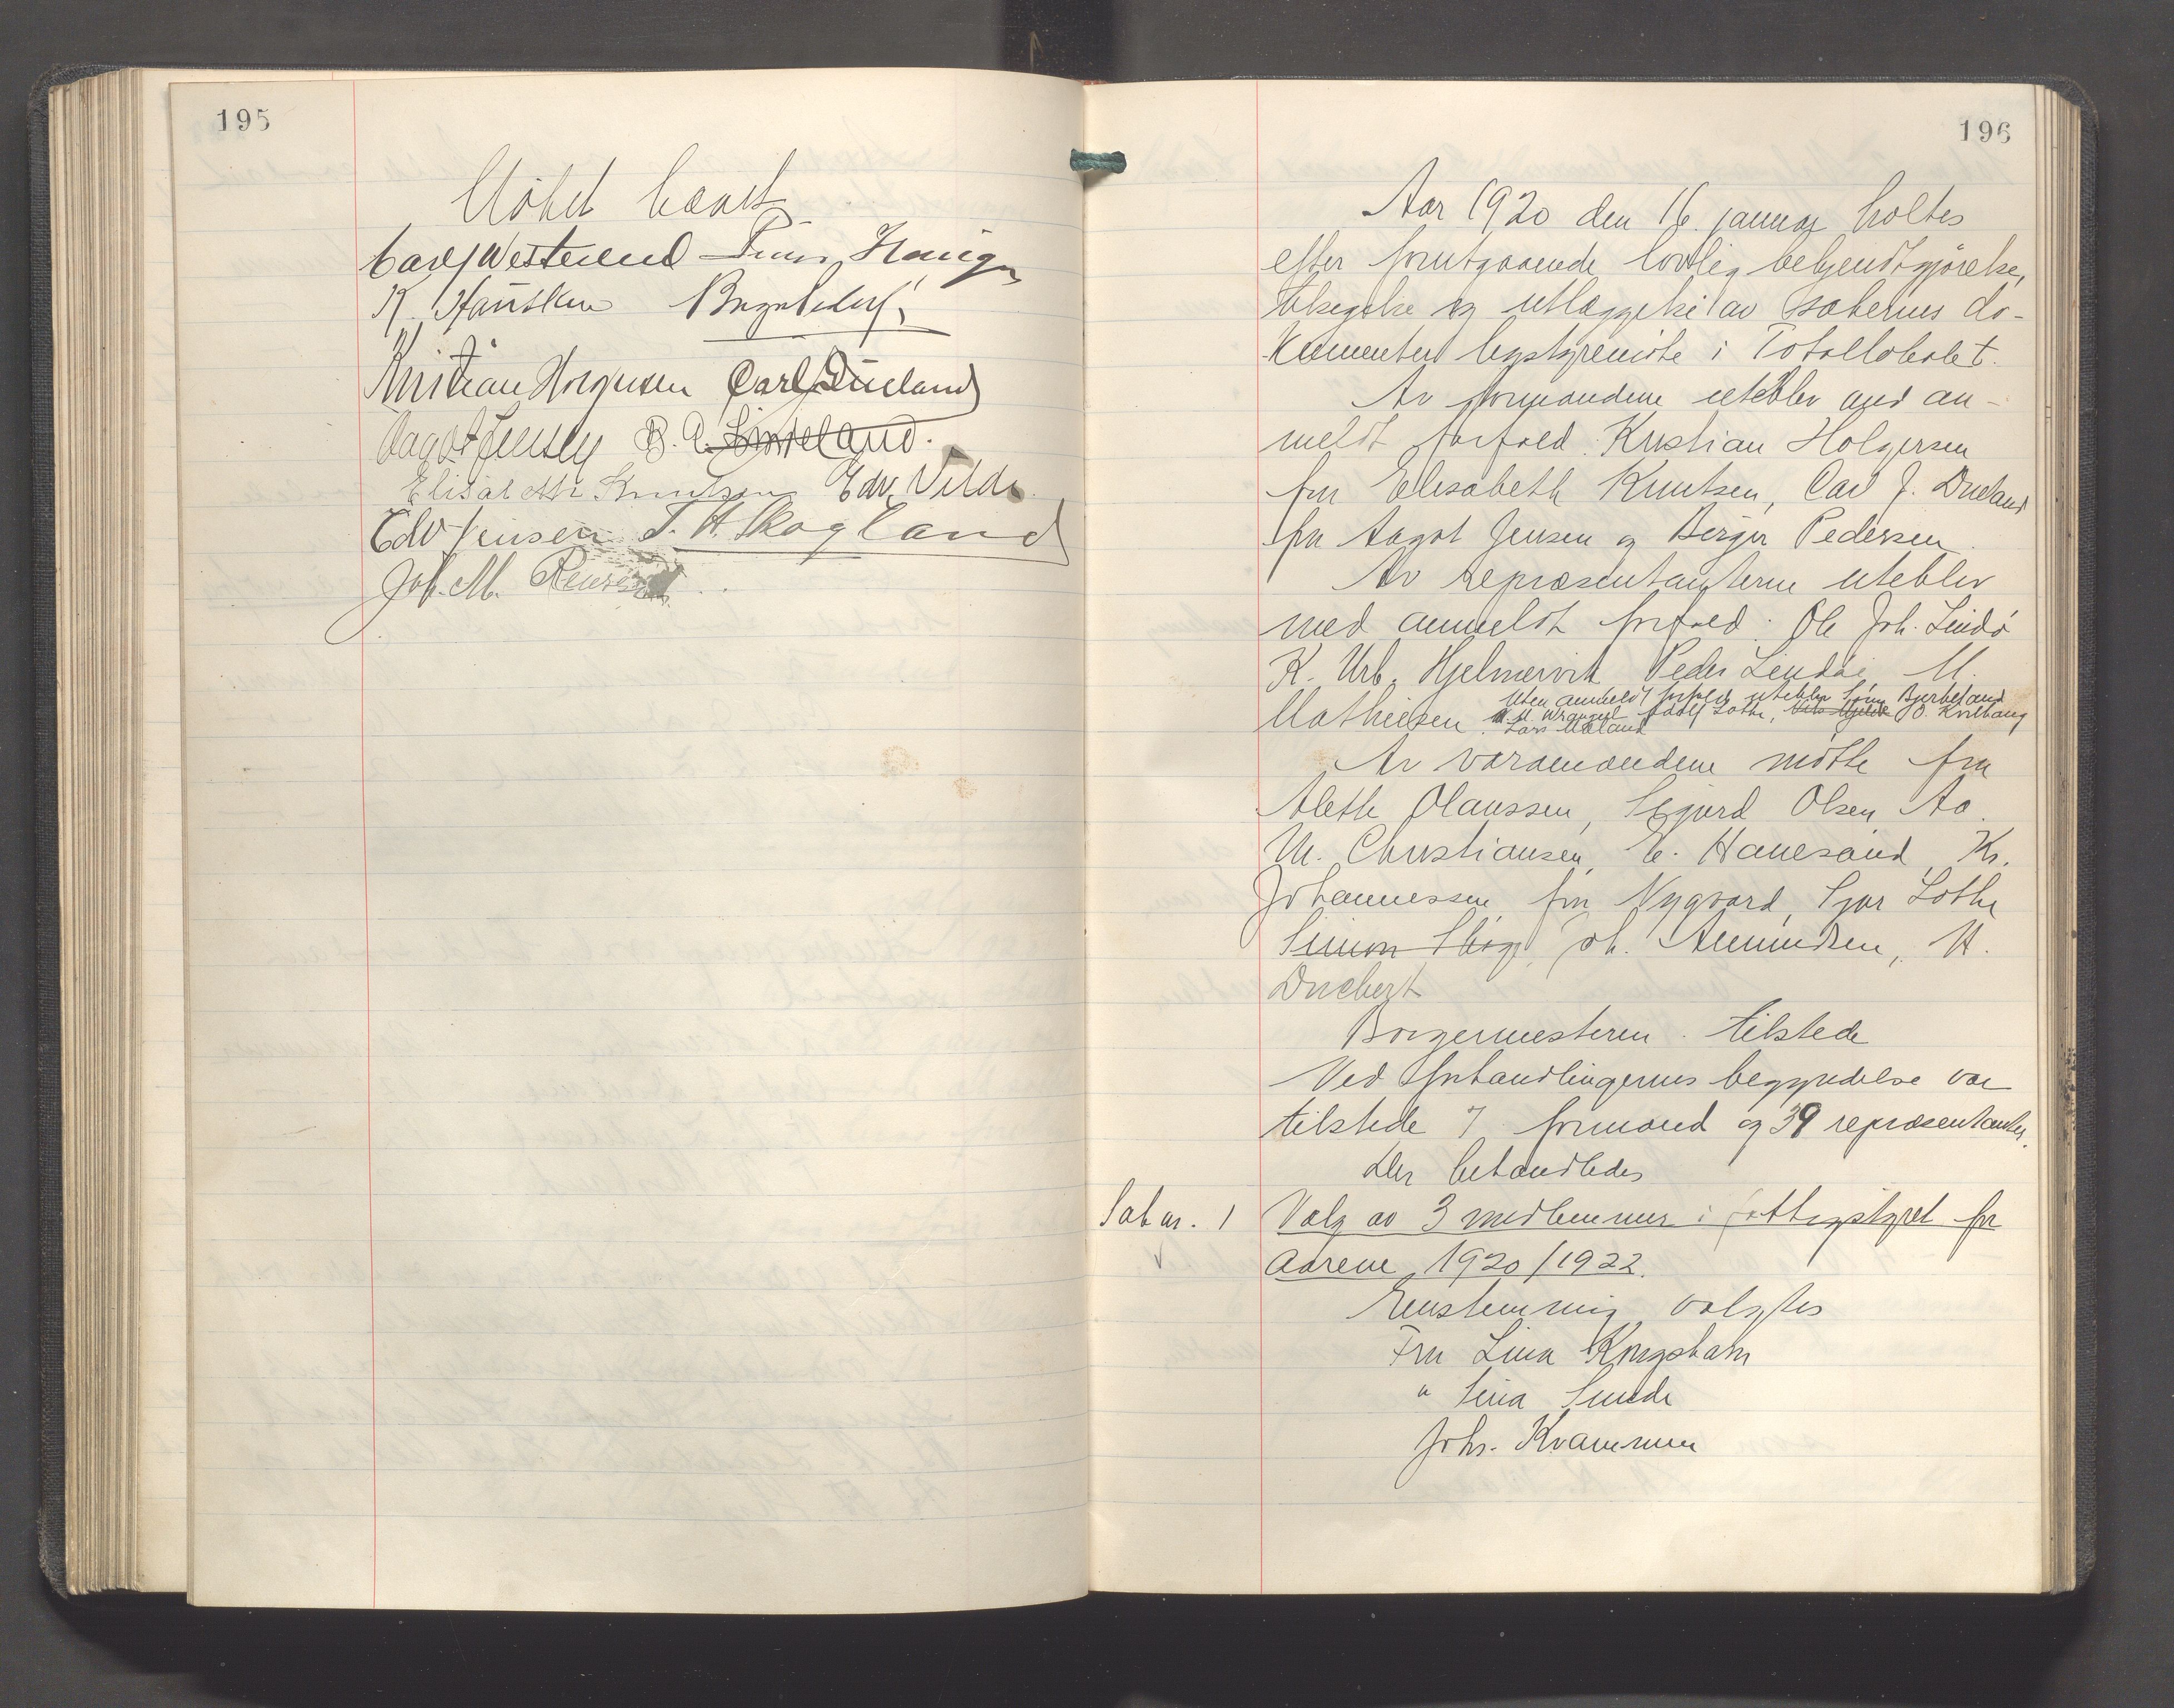 195
Møtet hævet
Carl J Westerlund
K. Hausken
Kristian Holgersen Carl J Dueland
Aagot Jensen
Elisabeth Knutsen Edv. Vilde
Edv Jensen T. H. Skogland
Joh. M.
196
Aar 1920 den 16. januar holtes
efter forutgaaende lovlig bekjendtgjørelse,
tilsigelse og utlæggelse av sakernes do-
kumenter bystyremøte i Totallokalet.
Av formændene uteblev med an-
meldt forfald: Kristian Holgersen
fru Elisabeth Knutsen, Carl J. Dueland
fru Aagot Jensen og Birger Pedersen.
Av repræsentanterne uteblev
med anmeldt forfald: Ole Joh. Lindø
K. Urb. Hjelmervik Peder Lindøe M.
Uten anmeldt forfald uteblev Bjerkeland
Mathiesen Adolf Lothe, O. Kvilhaug
Lars
Av varamændene møtte fru
Alethe Olaussen, Sigurd Olsen Aa.
M. Christiansen, E. Hanesand, Kr.
Johannessen fru Nygaard, Ivar Lothe
Simon Joh. Amundsen, H.
Duebert
Borgermesteren tilstede
Ved forhandlingernes begyndelse var
tilstede 7 formænd og 39 repræsentanter.
Der behandledes
Sak nr. 1 Valg av 3 medlemmer i fattigstyret for
aarene 1920/1922.
Enstemmig valgtes
Fru Lina Kongshavn
" Sina Sunde
Johs. Kvammen